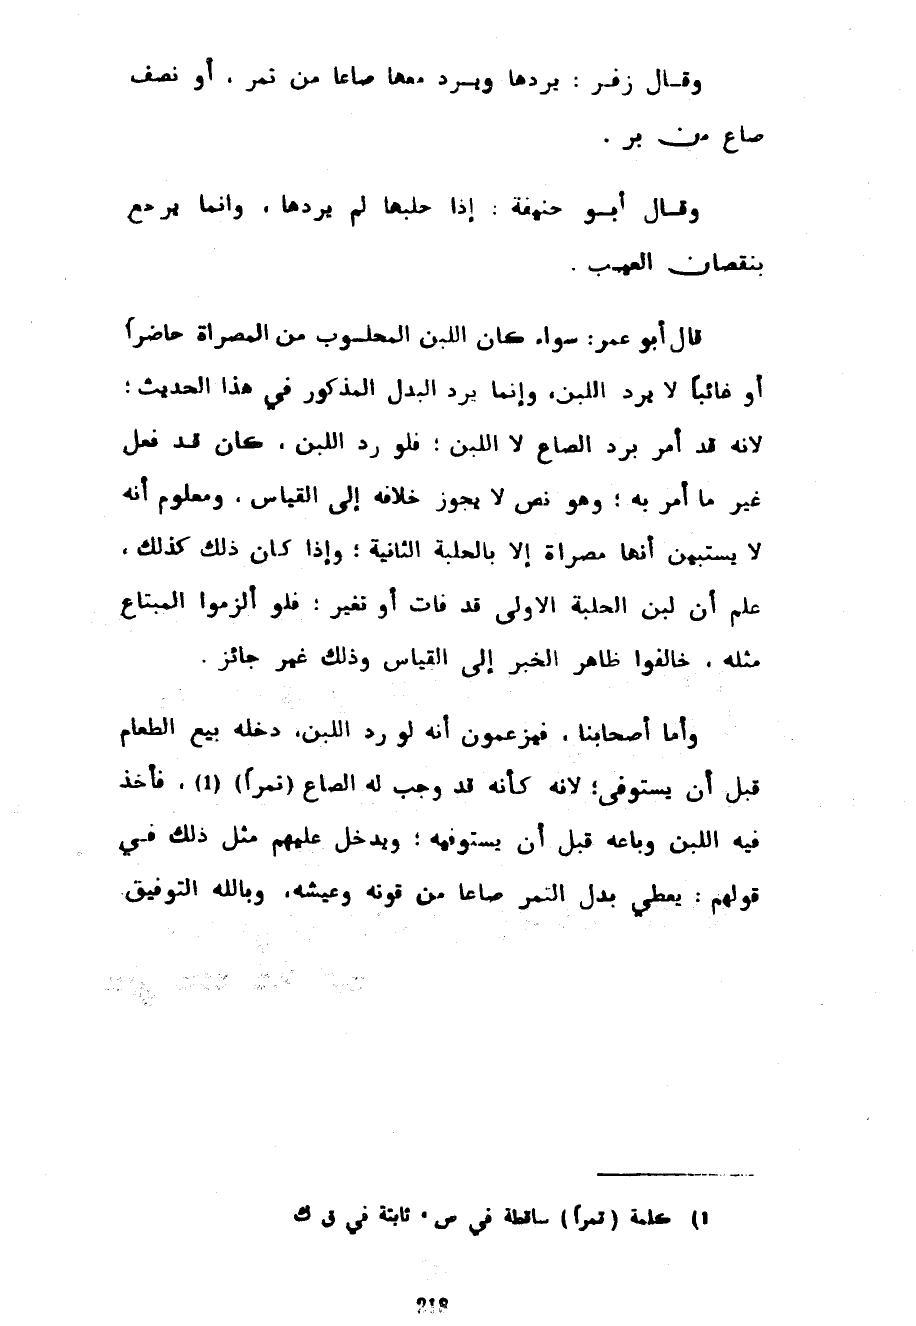 وقـال زفـر : يردها ويـرد معها صاعا من تمر ، أو نصف
صاع من بر .
وقـال أبـو حنيفة : إذا حلبها لم يردها ، وانما يرجع
بنقصان العيب .
قال أبو عمر: سواء كان اللبن المحلـوب من المصراة حاضراً
أو غائباً لا يرد اللبن، وإنما يرد البدل المذكور في هذا الحديث ؛
لانه قد أمر برد الصاع لا اللبن ؛ فلو رد اللبن ، كان قـد فعل
غير ما أمر به ؛ وهو نص لا يجوز خلافه إلى القياس ، ومعلوم أنه
لا يستبين أنها مصراة إلا بالحلبة الثانية ؛ وإذا كان ذلك كذلك ،
علم أن لبن الحلبة الاولى قد فات أو تغير ؛ فلو ألزموا المبتاع
مثله ، خالفوا ظاهر الخبر إلى القياس وذلك غير جائز .
وأما أصحابنا ، فيزعمون أنه لو رد اللبن، دخله بيع الطعام
قبل أن يستوفى؛ لانه كأنه قد وجب له الصاع (تمراً) (1) ، فأخذ
فيه اللبن وباعه قبل أن يستوفيه ؛ ويدخل عليهم مثل ذلك فـي
قولهم : يعطي بدل التمر صاعا من قوته وعيشه، وبالله التوفيق.
1) كلمة (تمراً) ساقطة في ص • ثابتة في ق ك
218